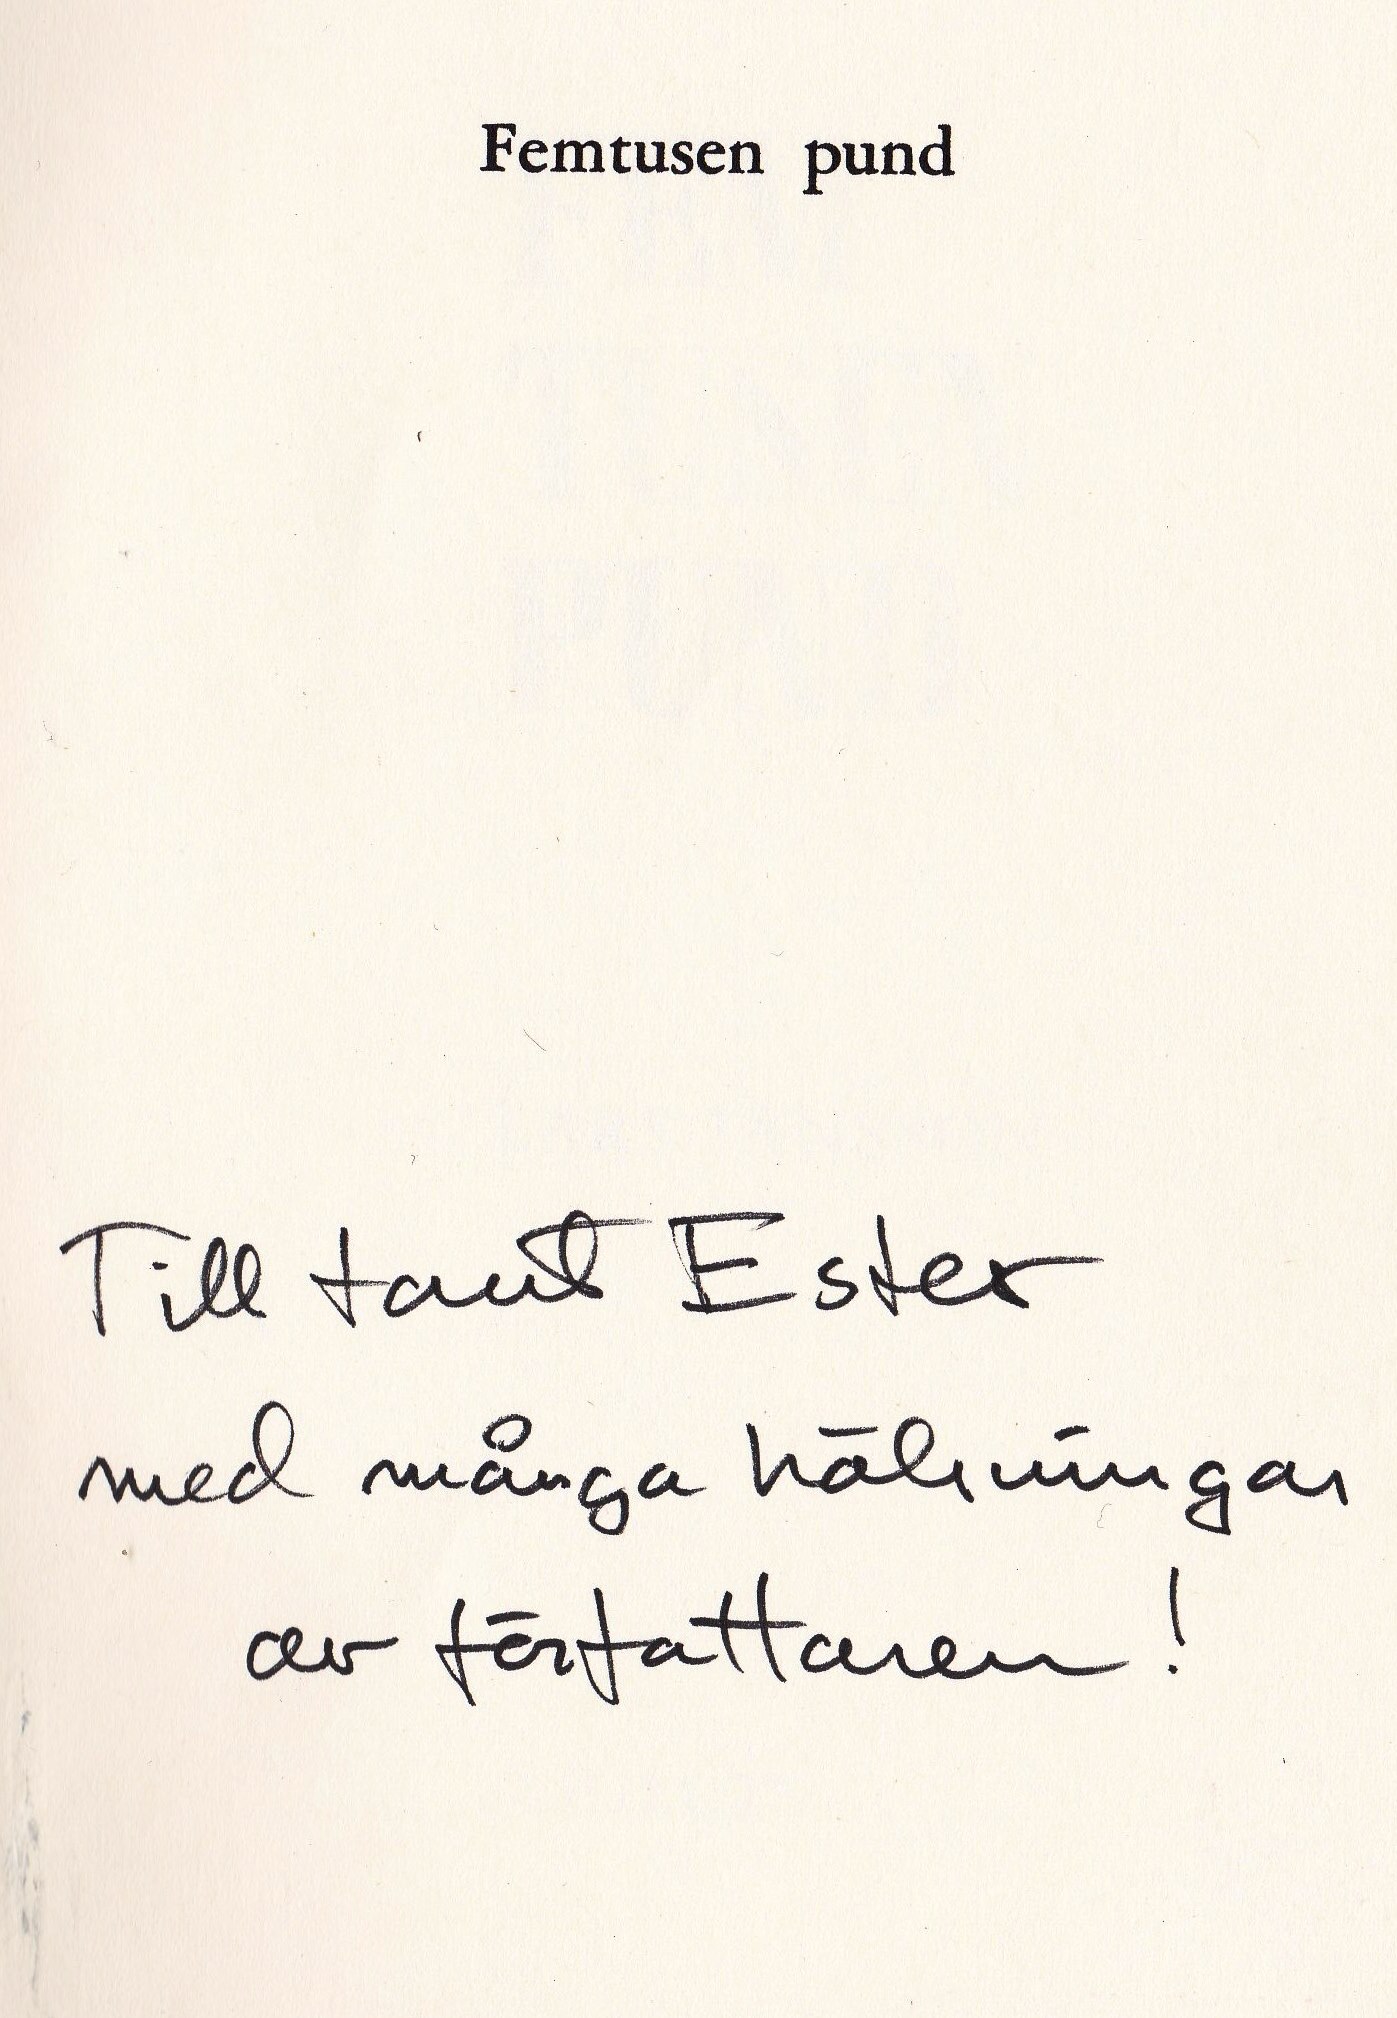 Femtusen pund
Till tant Ester
med många hälsningar
av författaren!